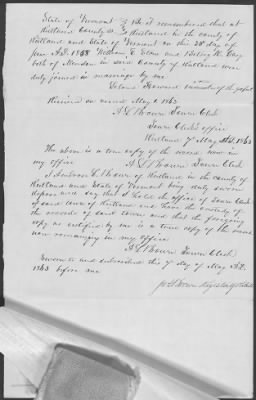 State of Vermont } Be it remembered that at
Rutland County ss } Rutland in the county of
Rutland and State of Vermont on the 28 day of
A.D. 1858 William E. and Betsey H.
both of Mendon in said County of Rutland were
duly joined in marriage by me
Leland Howard minister of the gospel
Received on record May 6 1863
A L Brown Town Clerk
Town Clerk's office
Rutland 7 May A.D. 1863
The above is a true copy of the record now in
my office A L Brown Town Clerk
I Ambrose L Brown of Rutland in the county of
Rutland and State of Vermont being duly sworn
depose and say that I hold the office of Town Clerk
of said town of Rutland and have the custody of
the records of said town and that the foregoing
copy as certified by me is a true copy of the same
now remaining in my office
A L Brown Town Clerk
Sworn to and subscribed this 7 day of May A.D.
1863 before me
Register of Probate